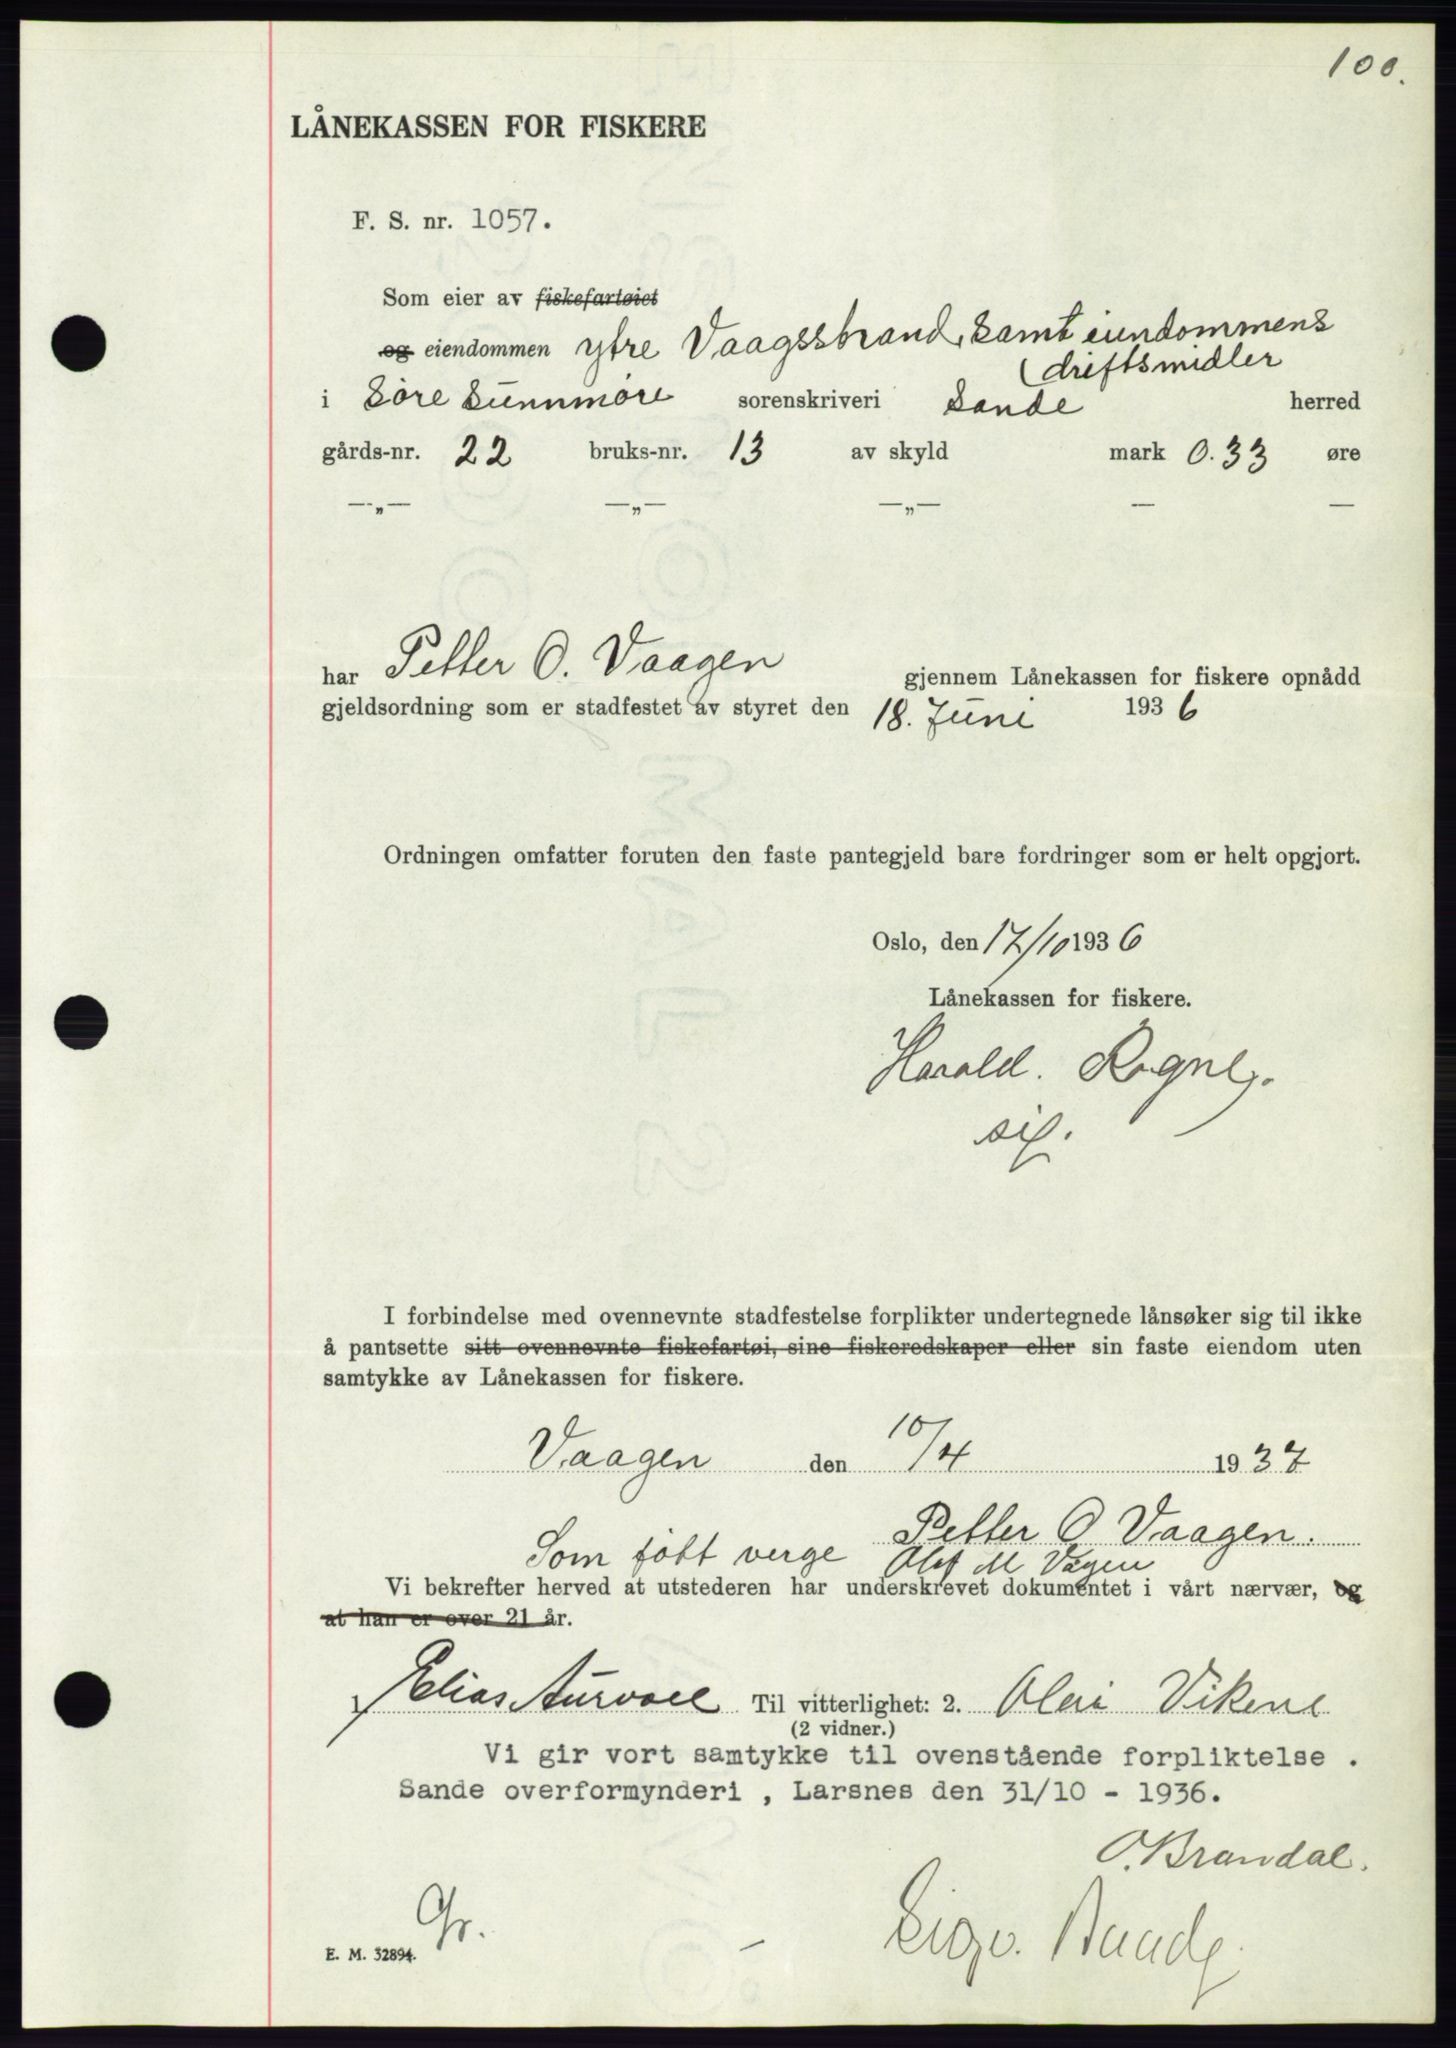 100.
LÅNEKASSEN FOR FISKERE
F. S. nr. 1057.
Som eier av fiskefartøiet
og eiendommen ytre Vaagsstrand, samt eiendommens
driftsmidler
i Søre Sunnmøre sorenskriveri Sande herred
gårds-nr. 22 bruks-nr. 13 av skyld mark 0.33 øre
—„— —„— —„— — —
har Petter O. Vaagen gjennem Lånekassen for fiskere opnådd
gjeldsordning som er stadfestet av styret den 18. Juni 1936
Ordningen omfatter foruten den faste pantegjeld bare fordringer som er helt opgjort.
Oslo, den 17/10 1936
Lånekassen for fiskere.
Harald Rogne.
sig.
I forbindelse med ovennevnte stadfestelse forplikter undertegnede lånsøker sig til ikke
å pantsette sitt ovennevnte fiskefartøi, sine fiskeredskaper eller sin faste eiendom uten
samtykke av Lånekassen for fiskere.
Vaagen den 10/4 1937
Petter O Vaagen.
Som født verge Olaf M Vågen
Vi bekrefter herved at utstederen har underskrevet dokumentet i vårt nærvær, og
at han er over 21 år.
1. Elias Aurvoll Til vitterlighet: 2. Olai Vikene
(2 vidner.)
Vi gir vort samtykke til ovenstående forpliktelse .
Sande overformynderi , Larsnes den 31/10 - 1936.
O. Brandal.
Sigv.
Gr.
E. M. 32894.